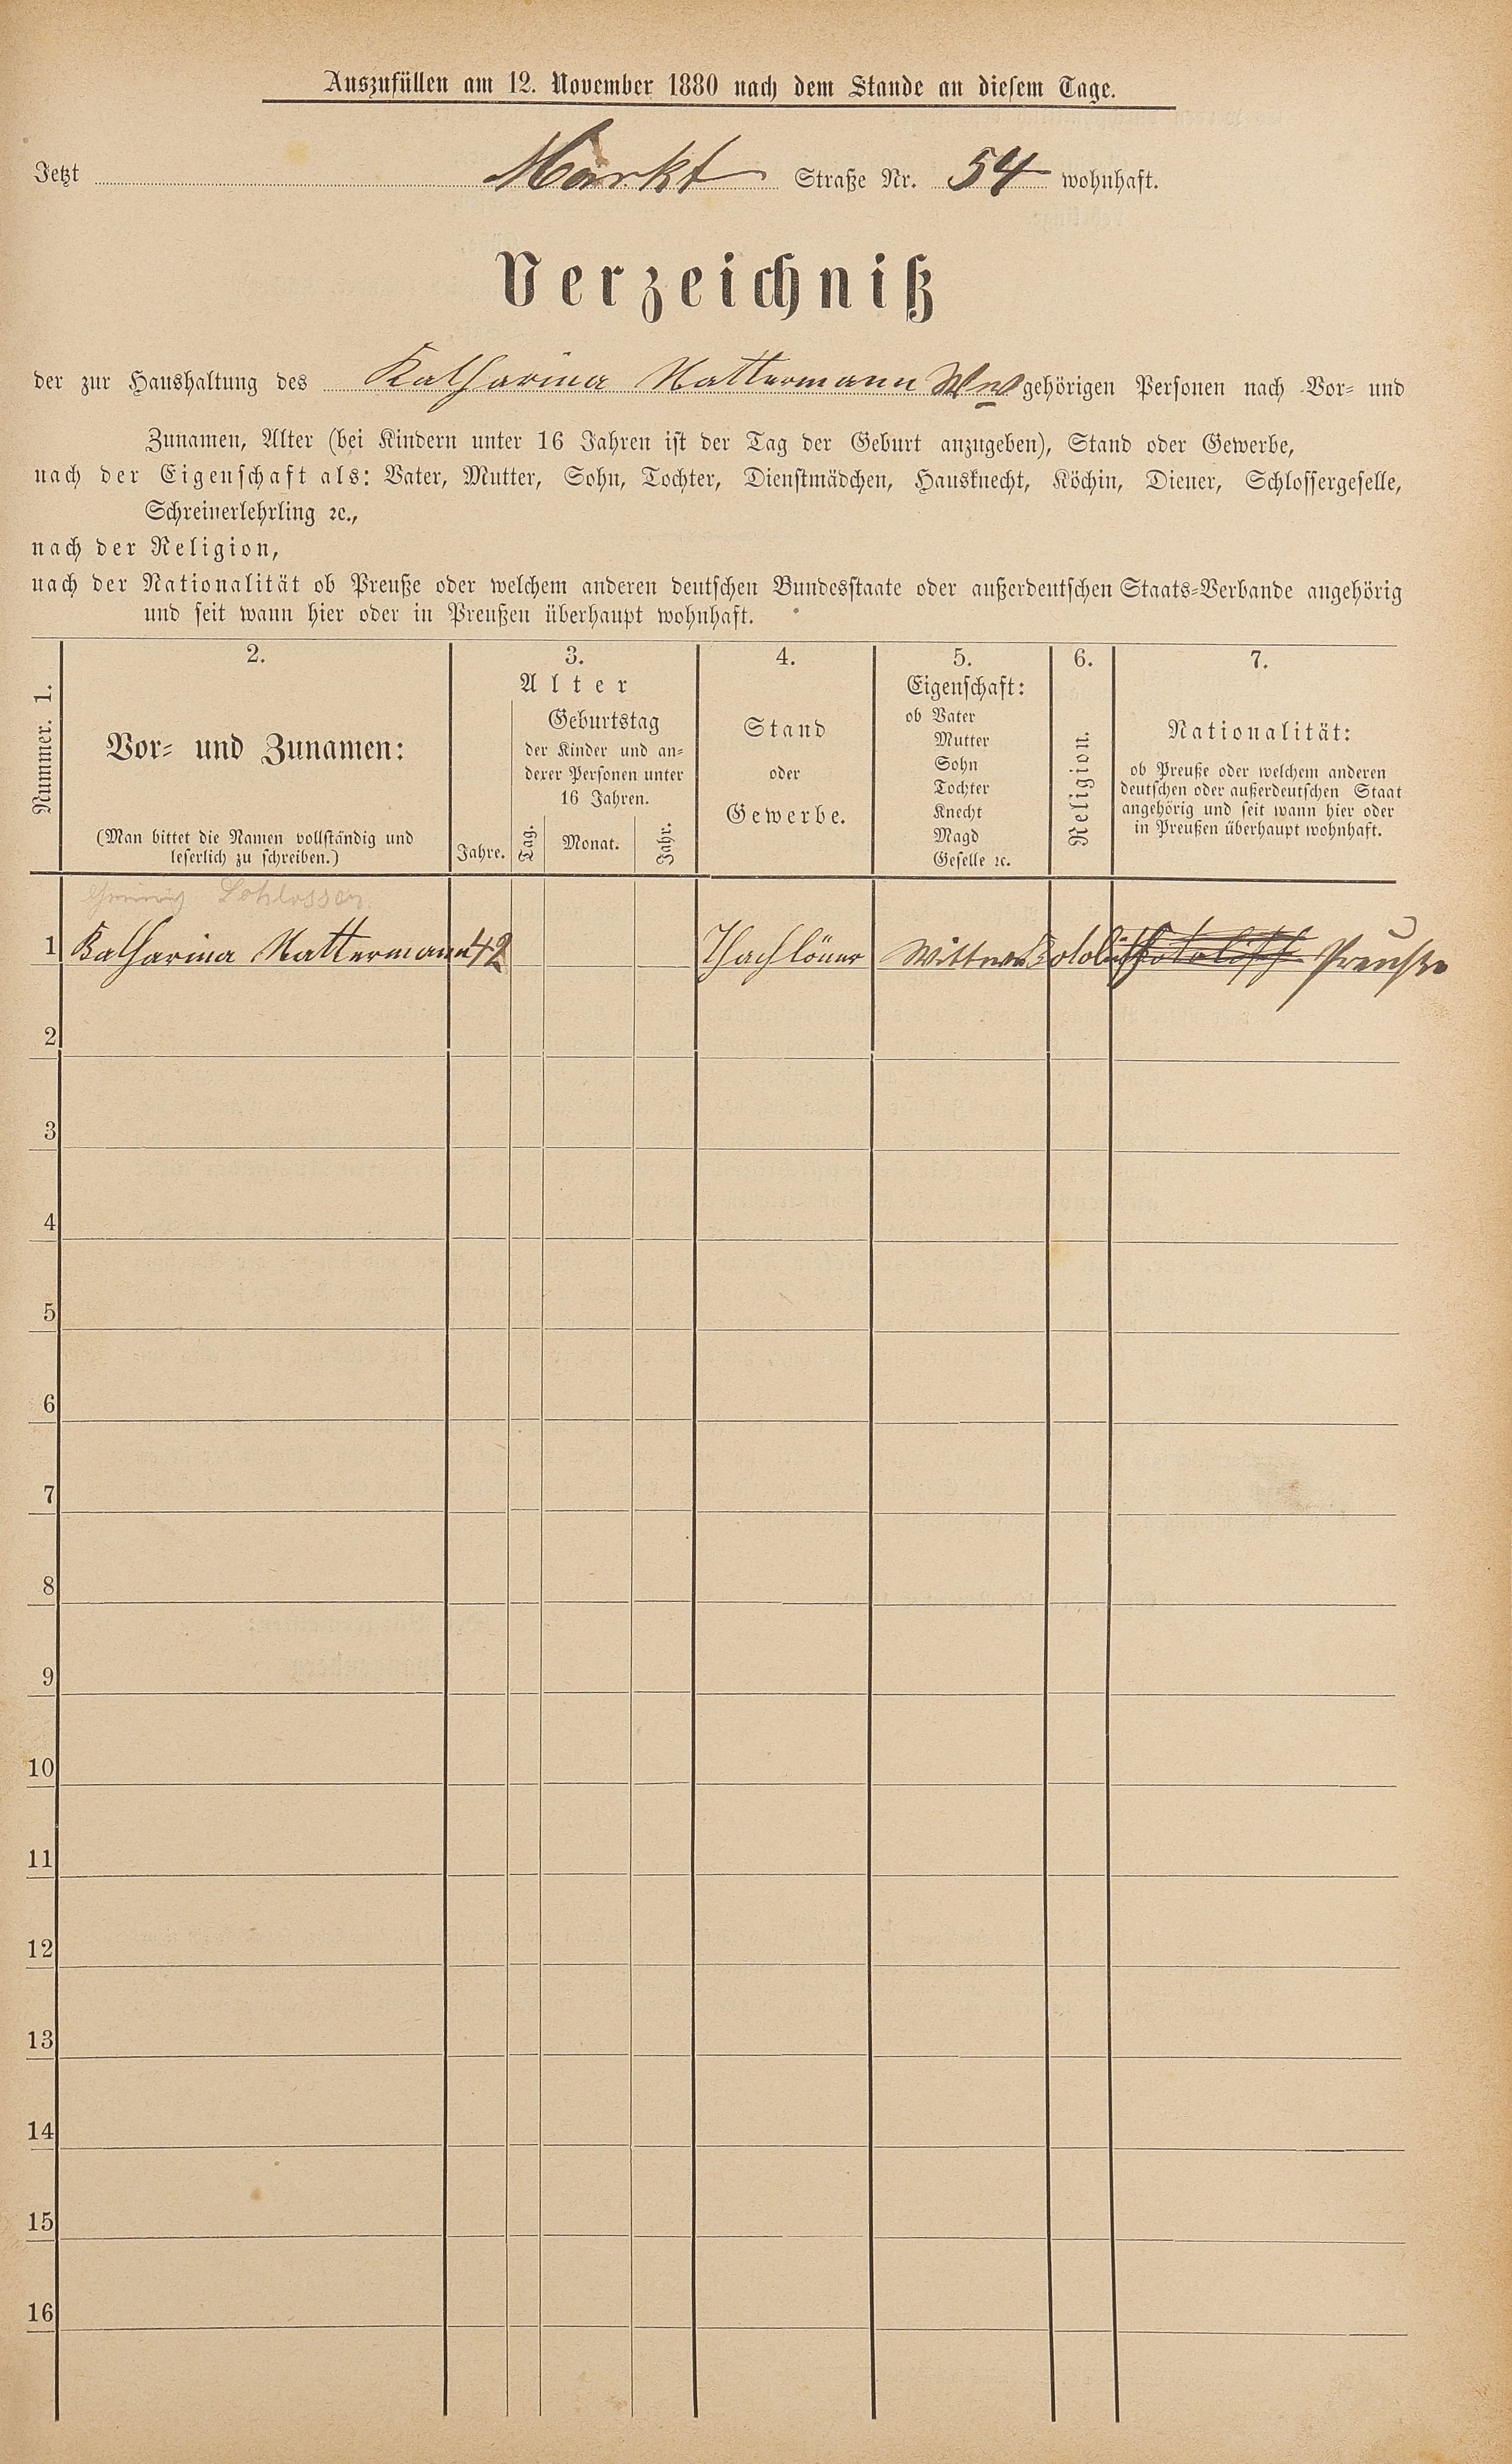 Auszufüllen am 12. November 1880 nach dem Stande an diesem Tage.
Jetzt Markt Straße Nr. 54 wohnhaft.
Verzeichniß
der zur Haushaltung des Katharina Nattermann Ww gehörigen Personen nach Vor- und
Zunamen, Alter (bei Kindern unter 16 Jahren ist der Tag der Geburt anzugeben), Stand oder Gewerbe,
nach der Eigenschaft als: Vater, Mutter, Sohn, Tochter, Dienstmädchen, Hausknecht, Köchin, Diener, Schlossergeselle,
Schreinerlehrling ꝛc.,
nach der Religion,
nach der Nationalität ob Preuße oder welchem anderen deutschen Bundesstaate oder außerdeutschen Staats-Verbande angehörig
und seit wann hier oder in Preußen überhaupt wohnhaft.
Nummer. 1.
2.
Vor- und Zunamen:
(Man bittet die Namen vollständig und
leserlich zu schreiben.)
3.
Alter
Jahre.
Geburtstag
der Kinder und an-
derer Personen unter
16 Jahren.
Tag. Monat. Jahr.
4.
Stand
oder
Gewerbe.
5.
Eigenschaft:
ob Vater
Mutter
Sohn
Tochter
Knecht
Magd
Geselle ꝛc.
6.
Religion.
7.
Nationalität:
ob Preuße oder welchem anderen
deutschen oder außerdeutschen Staat
angehörig und seit wann hier oder
in Preußen überhaupt wohnhaft.
Schlosser
1 Katharina Nattermann 42 Wittwe Preuße
2
3
4
5
6
7
8
9
10
11
12
13
14
15
16